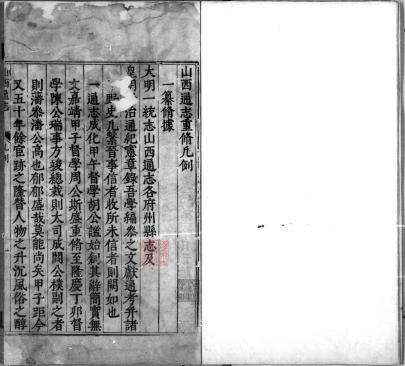 山西通志重修凡例
一纂修據
大明一統志山西通志各府州縣志及
皇明 治通紀憲章錄吾學編叅之文獻通考并諸
野史凡繫晉事信者收所未信者則闕如也
一通志成化甲午督學胡公謐始創其辭簡實無
文嘉靖甲子督學周公斯盛重修至隆慶丁卯督
學陳公瑞事方竣總裁則太司成閻公樸副之者
則藩叅潘公高也郁郁盛哉莫能尚矣甲子距今
又五十年餘宦跡之隆替人物之升沉風俗之醇
山西通志
凡例